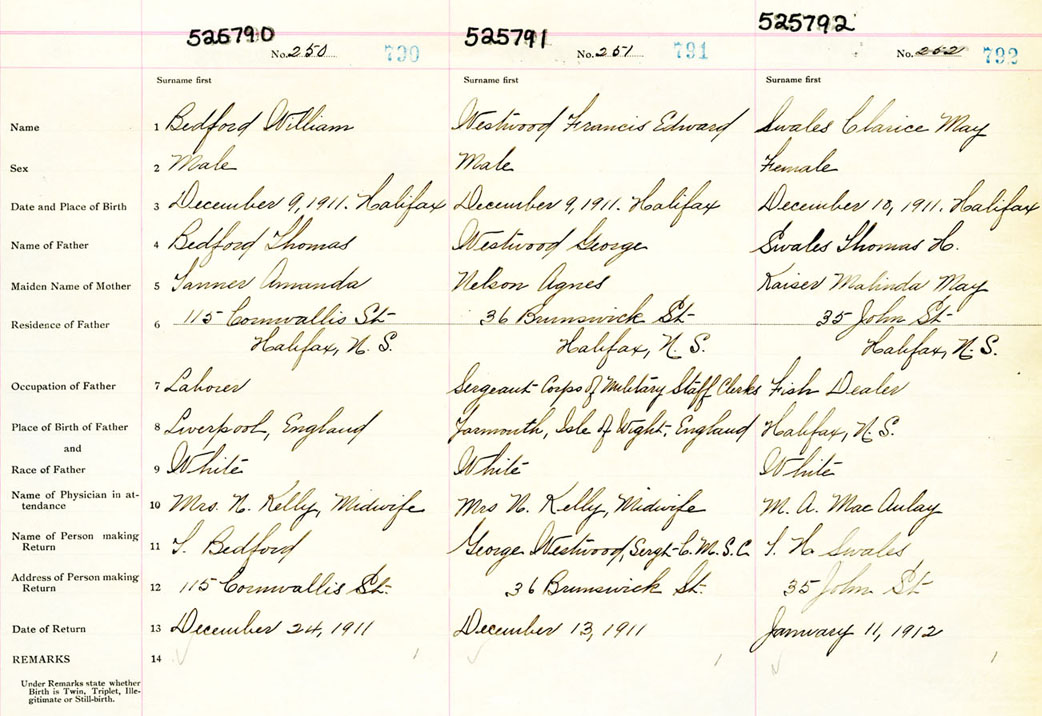 525790 525791 525792
No. 250 790 No. 251 791 No. 252 792
Surname first Surname first Surname first
Name 1 Bedford William Westwood Francis Edward Swales Clarice May
Sex 2 Male Male Female
Date and Place of Birth 3 December 9, 1911. Halifax December 9, 1911. Halifax December 10, 1911. Halifax
Name of Father 4 Bedford Thomas Westwood George Swales Thomas H.
Maiden Name of Mother 5 Tanner Amanda Nelson Agnes Kaiser Malinda May
Residence of Father 6 115 Cornwallis St 36 Brunswick St. 35 John St
Halifax, N. S. Halifax, N. S. Halifax, N. S.
Occupation of Father 7 Laborer Sergeant Corps of Military Staff Clerks Fish Dealer
Place of Birth of Father 8 Liverpool, England Yarmouth, Isle of Wight, England Halifax, N. S.
and
Race of Father 9 White White White
Name of Physician in at-
tendance 10 Mrs. N. Kelly, Midwife Mrs N. Kelly, Midwife M. A. MacAulay
Name of Person making
Return 11 T. Bedford George Westwood, Sergt. C. M. S. C. T. H Swales
Address of Person making
Return 12 115 Cornwallis St. 36 Brunswick St. 35 John St
Date of Return 13 December 24, 1911 December 13, 1911 January 11, 1912
REMARKS 14
Under Remarks state whether
Birth is Twin, Triplet, Ille-
gitimate or Still-birth.